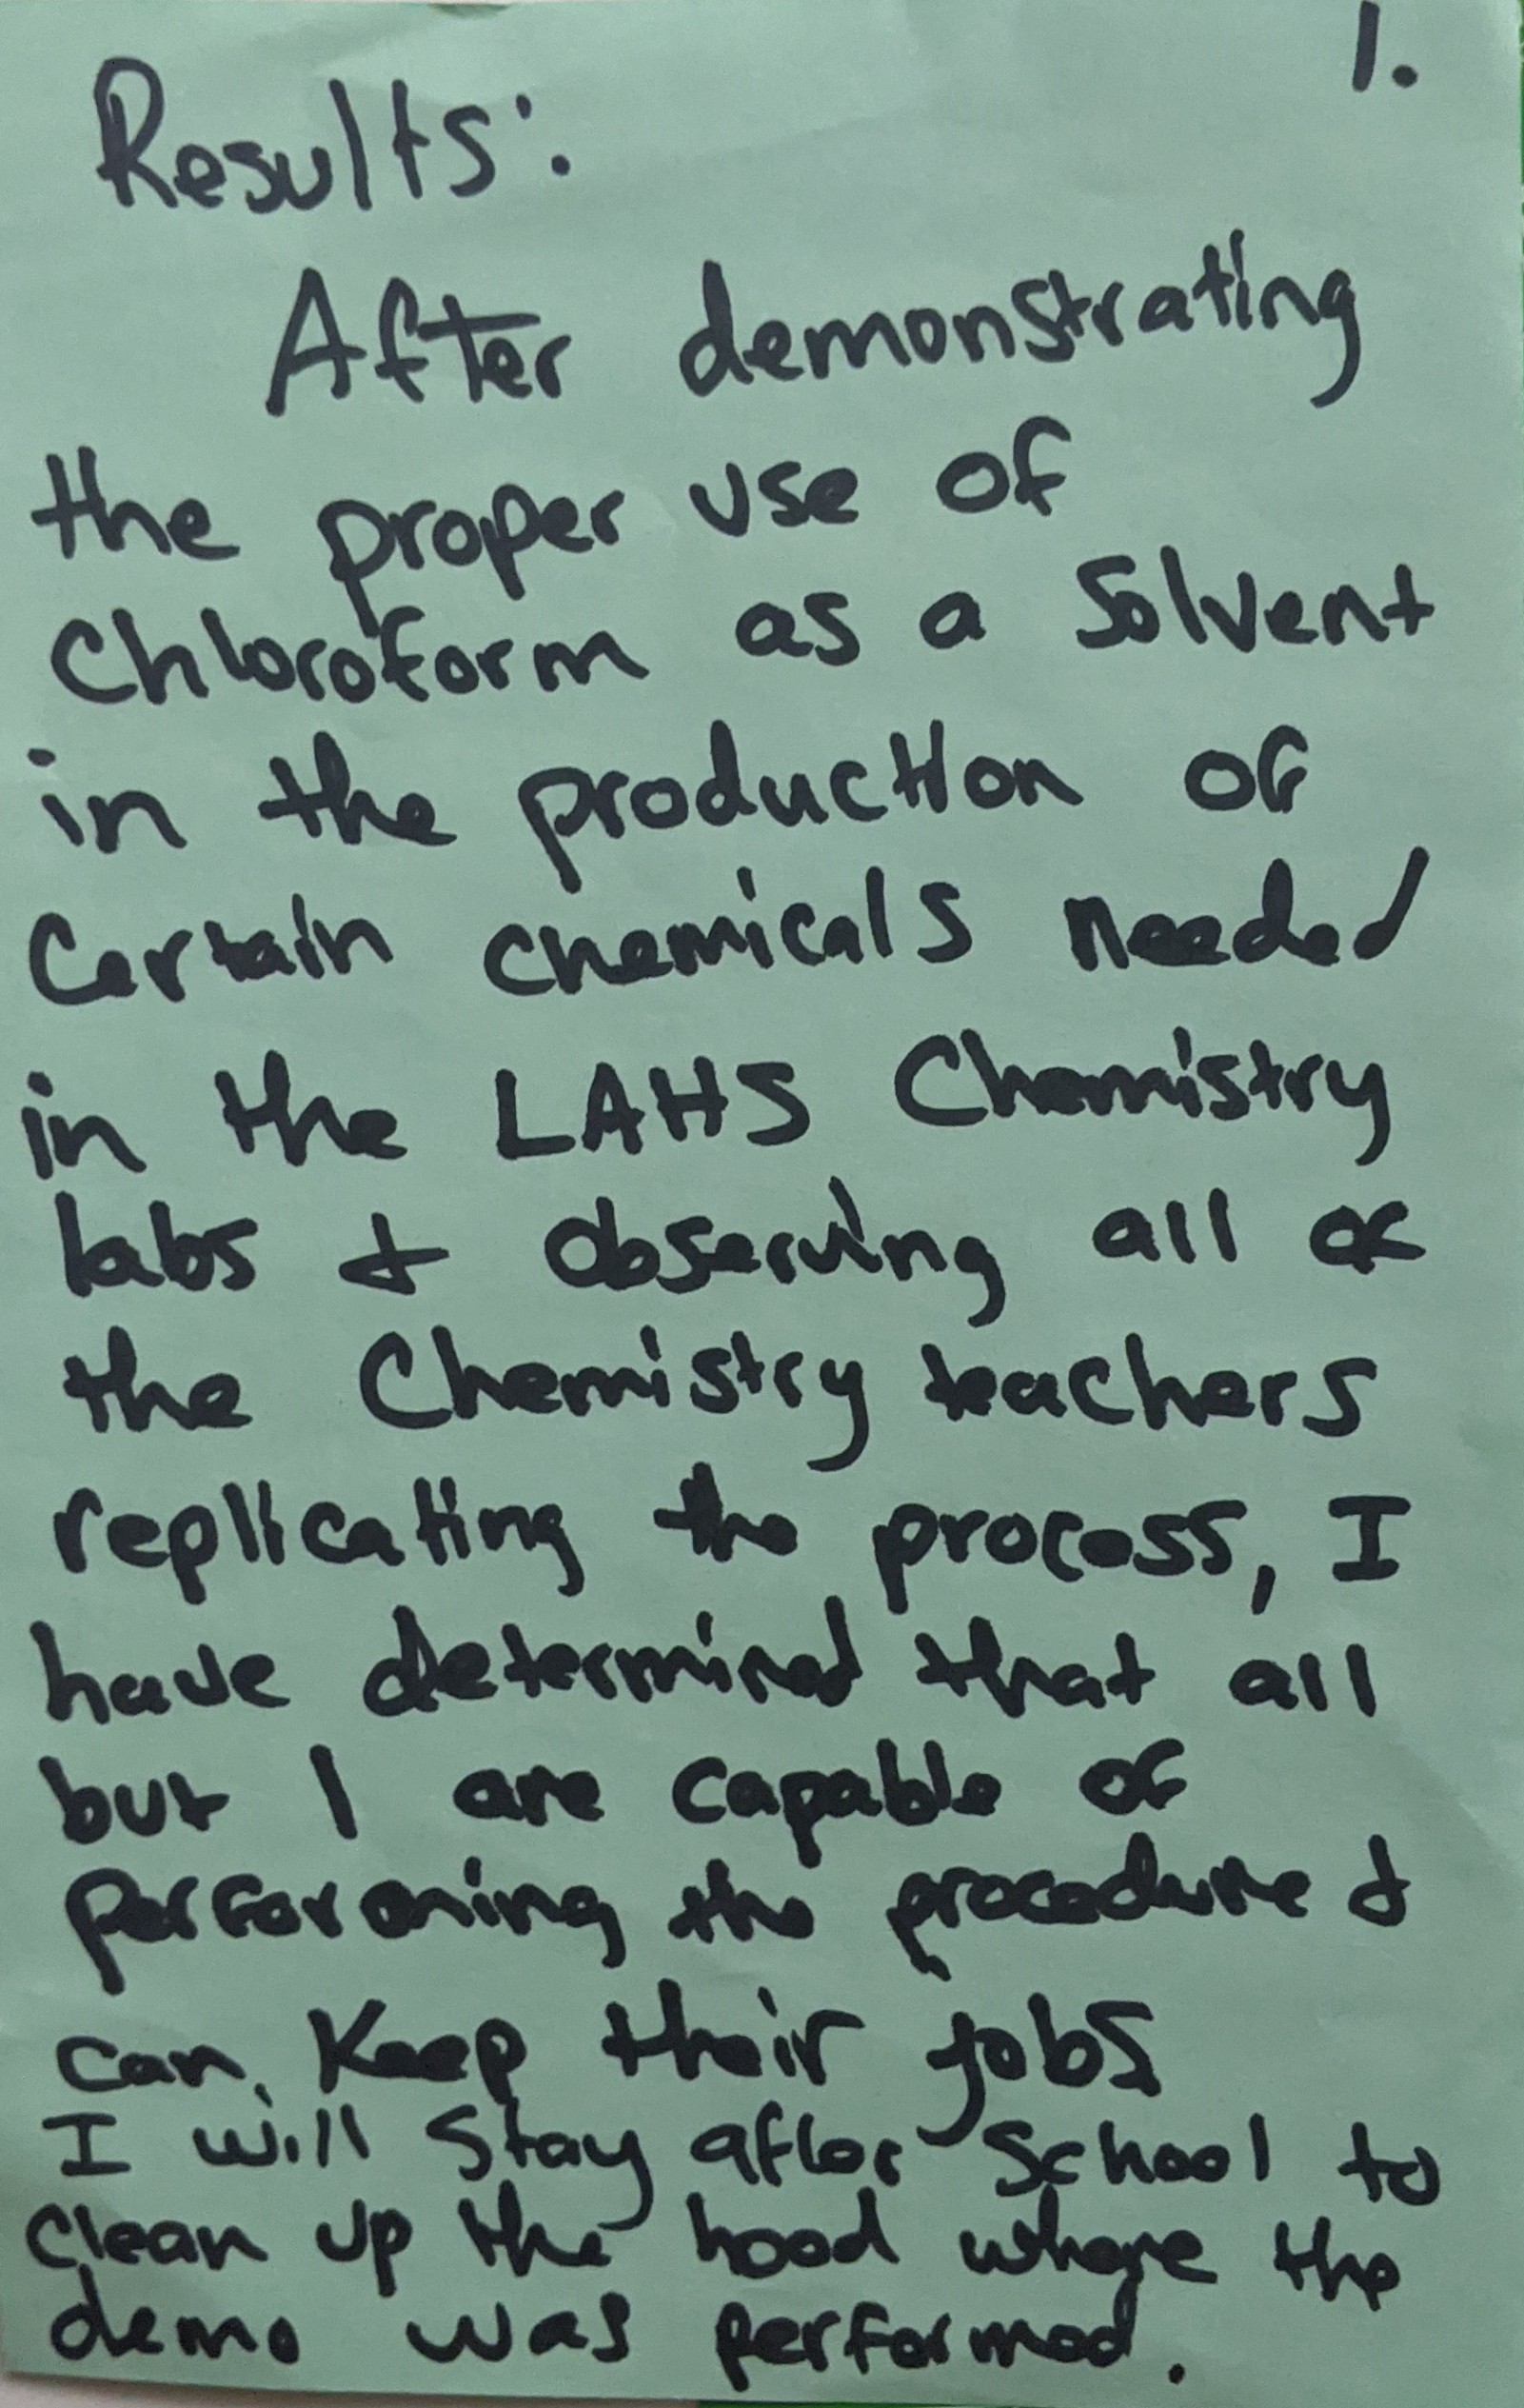 1.
Results:
After demonstrating
the proper use of
Chloroform as a Solvent
in the production of
Certain chemicals needed
in the LAHS Chemistry
labs & observing all of
the Chemistry teachers
replicating the process, I
have determined that all
but 1 are capable of
performing the procedure &
can keep their jobs
I will stay after school to
clean up the hood where the
demo was performed.